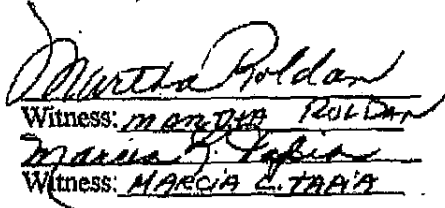 Martha Roldan
Witness: MARTHA ROLDAN
Marcia C. Tapia
Witness: MARCIA C. TAPIA